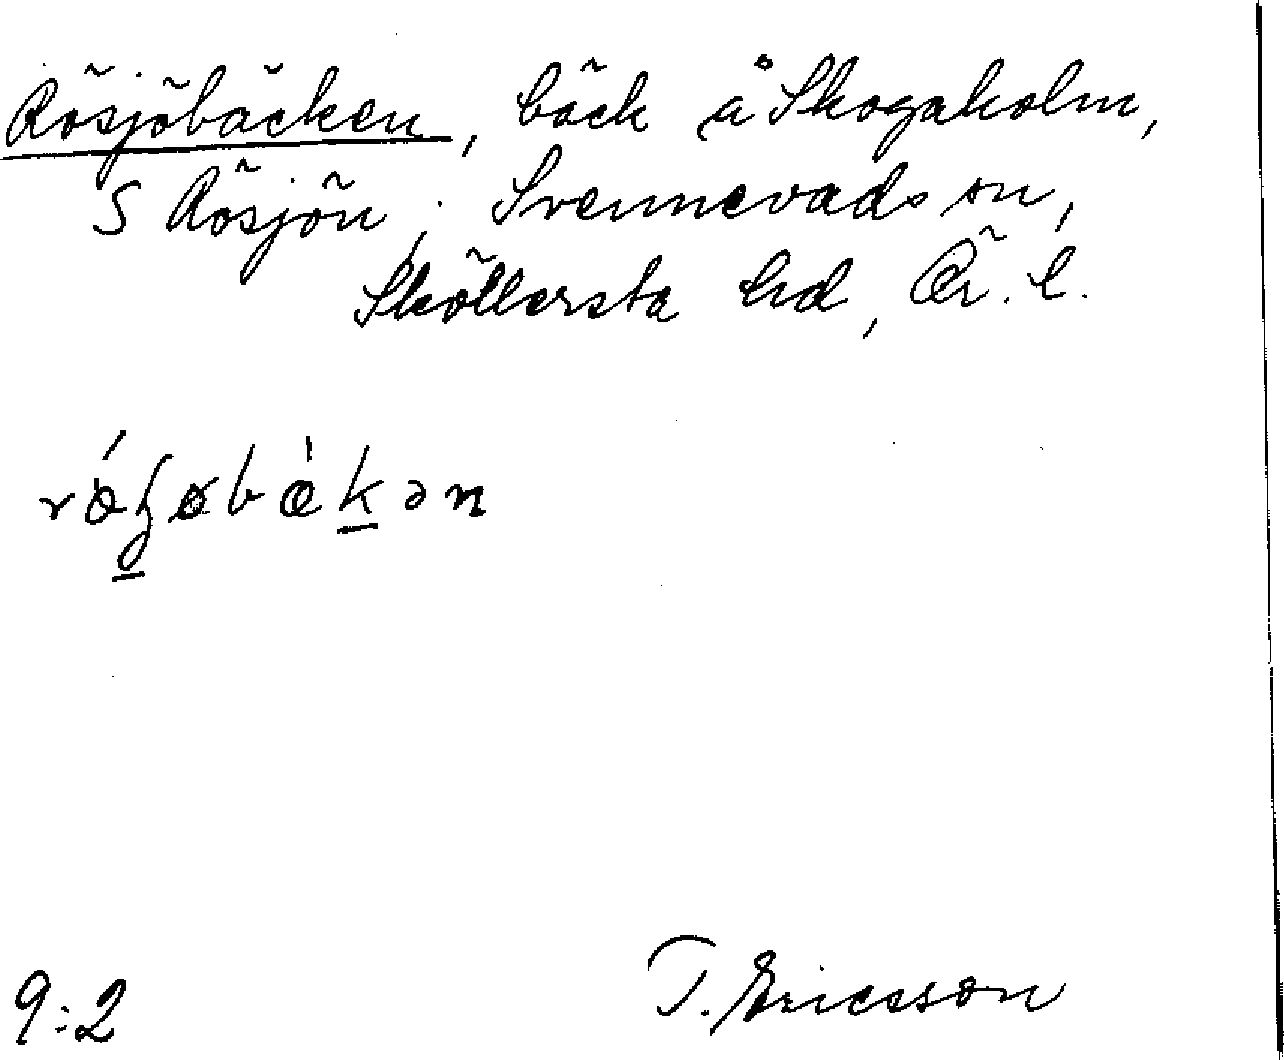 Rösjöbäcken, bäck å Skogaholm,
S Rösjön, Svennevads sn,
Sköllersta hd, Ör. l.
9:2
T. Ericsson